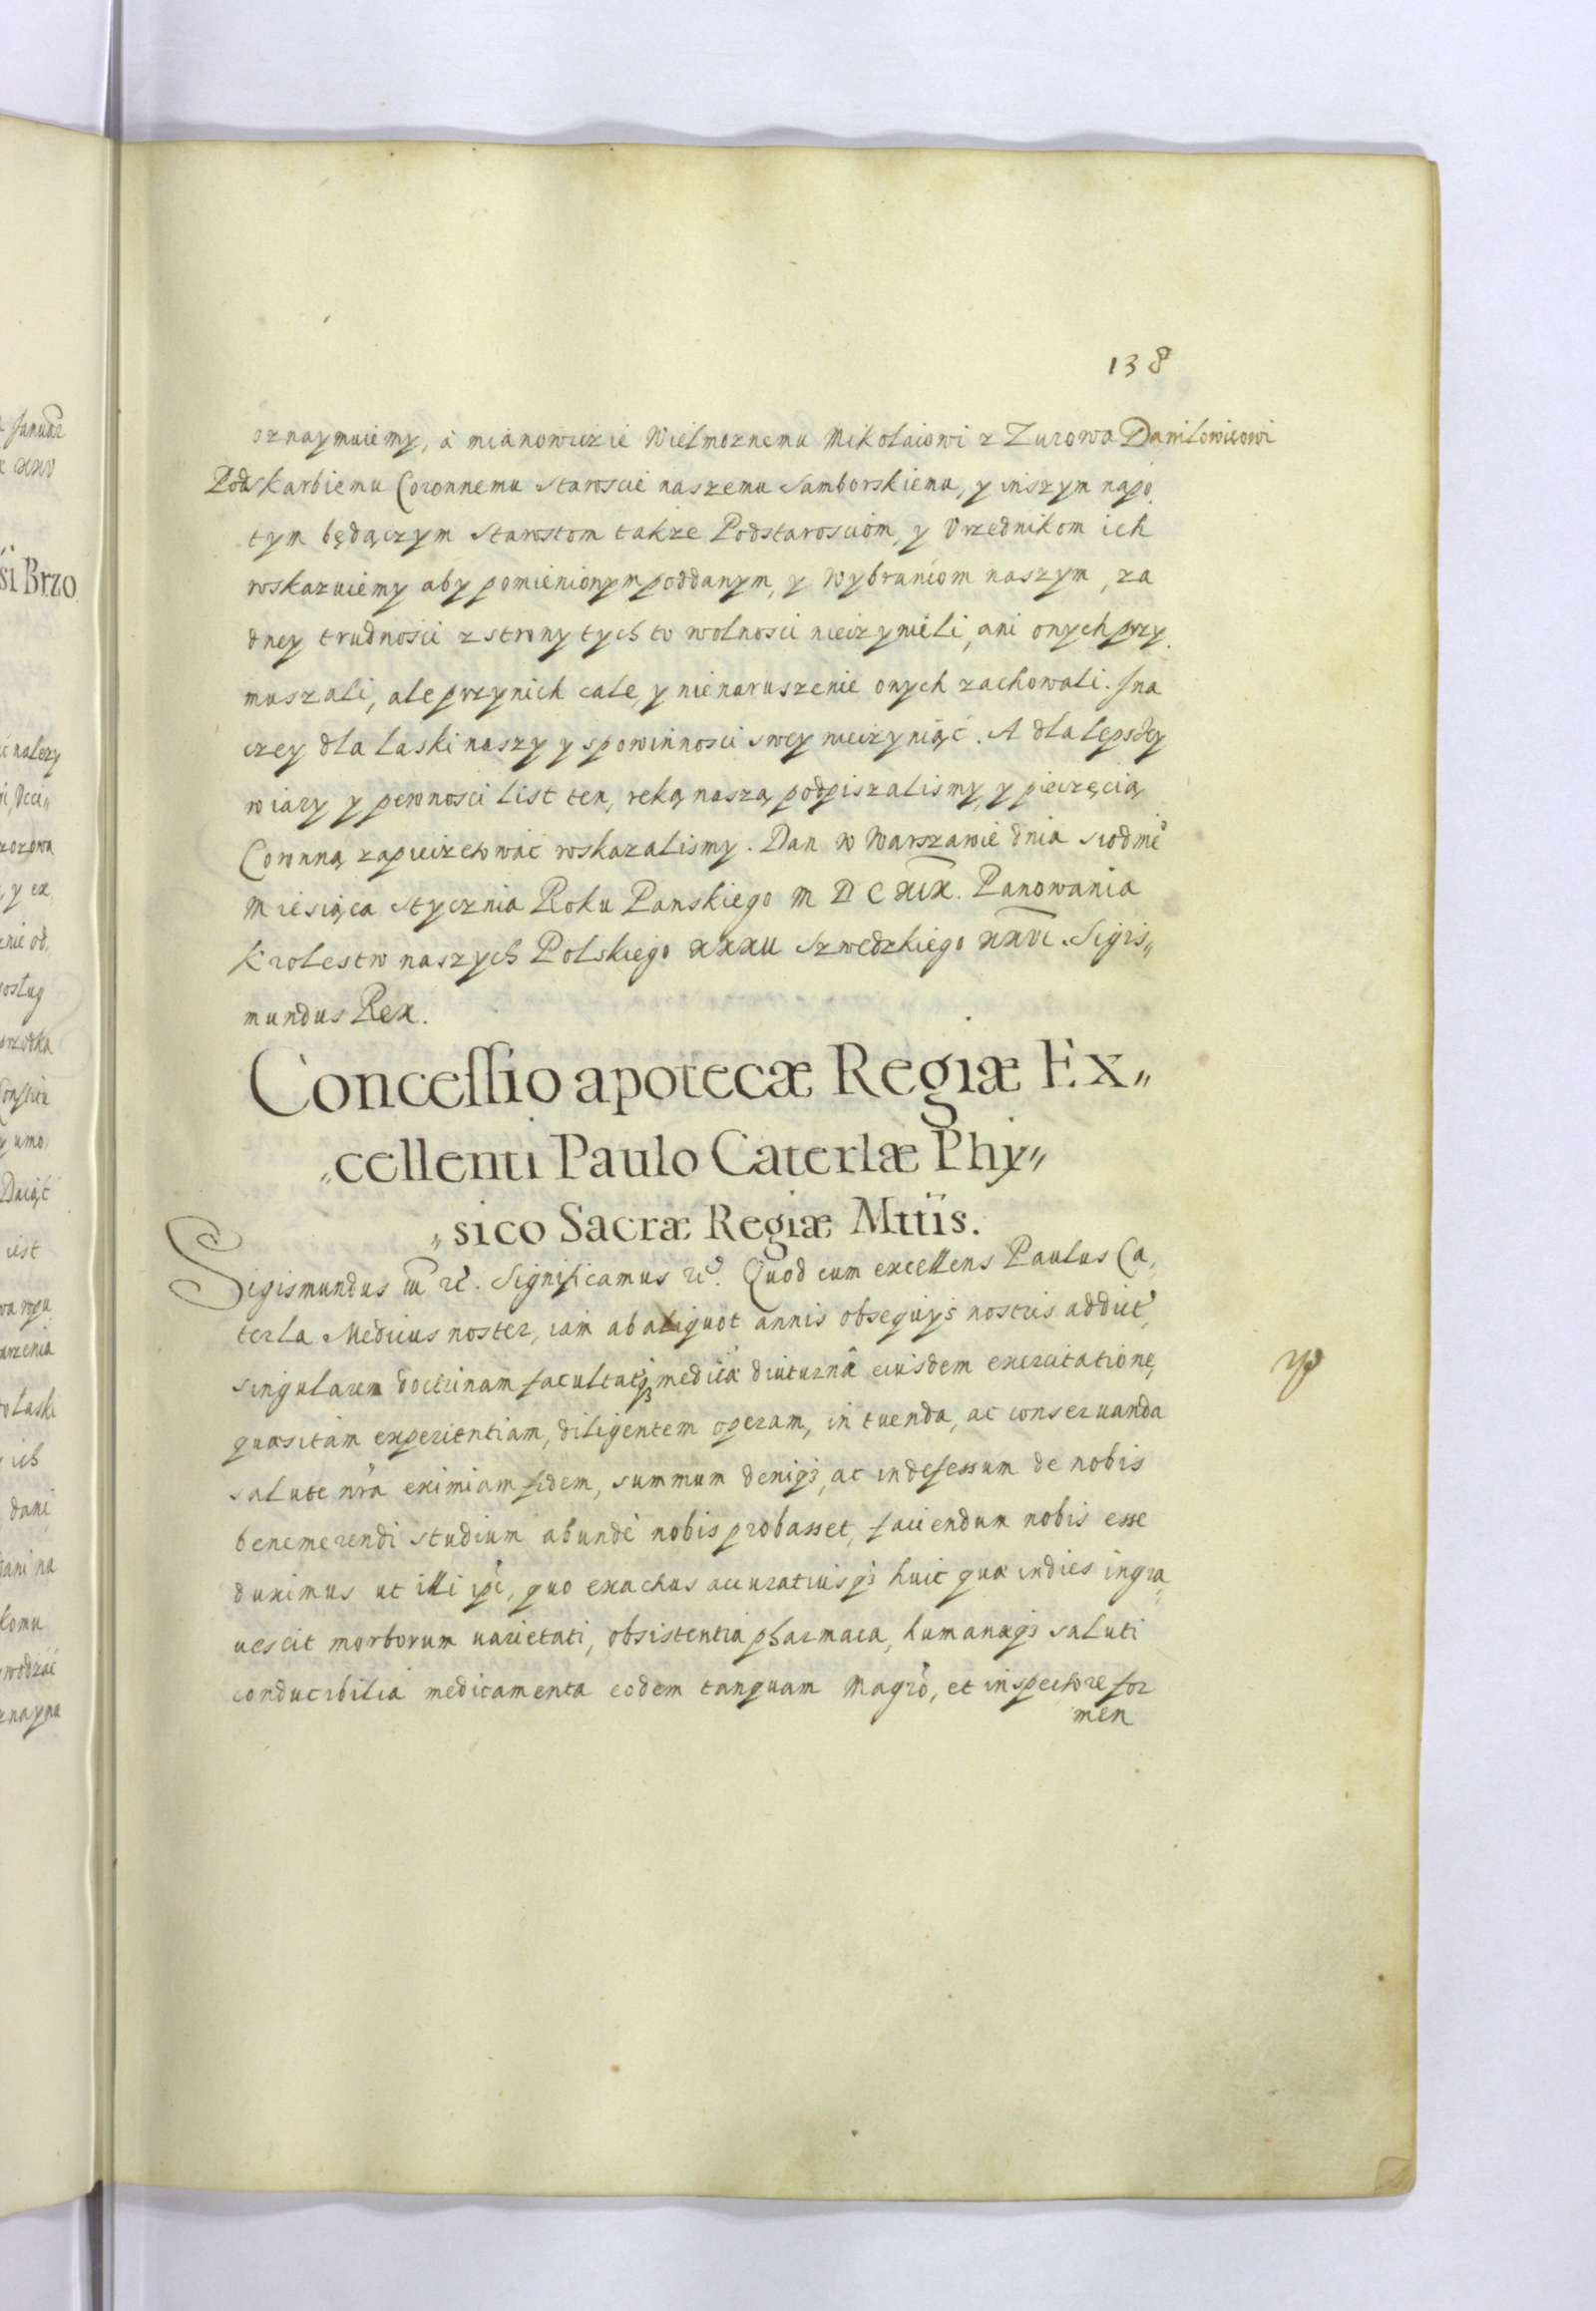 138
oznaymuiemy, á mianowicie Wielmoznemu Mikołaiowi z Zurowa Daniłowicowi
Podskarbiemu Coronnemu Staroscie naszemu Samborskiemu, y inszym napo
tym będączym Starostom także Podstarosciom, y Vrzednikom ich
roskazuiemy aby pomienionym poddanym, y Wybrańcom naszym, za
dney trudnosci z strony tych to wolnosci nieczynieli, ani onych przy
muszali, ale przy nich cale, y nienaruszenie onych zachowali. Ina
czey dla łaski naszy y z powinnosci swey nieczyniąć. A dla lepszey
wiary y pewnosci list ten, ręką naszą podpiszalismy, y pieczęcią
Coronną zapieczętować roskazalismy. Dan w Warszawie dnia siodme°
Miesiąca Stycznia Roku Panskiego M D C XIX. Panowania
Krolestw naszych Polskiego XXXII Szwedzkiego XXVI. Sigis„
mundus Rex.
Concessio apotecæ Regiæ Ex„
„cellenti Paulo Caterlæ Phy„
„sico Sacræ Regiæ Mttis.
Sigismundus iii etc. Significamus etc. Quod cum excellens Paulus Ca,
terla Medicus noster, iam ab aliquot annis obsequijs nostris addict,
singularem doctrinam facultatisq3 medicæ diuturnâ eiusdem exercitatione,
quæsitam experientiam, diligentem operam, in tuenda, ac conseruanda
salute nrã eximiam fidem, summum deniq3, ac indefessum de nobis
benemerendi studium abundè nobis probasset, faciendum nobis esse
duximus ut illi ipi, quo exactius accuratiusq3 huic quæ indies ingra,
uescit morborum uarietati, obsistentia pharmaca, humanæq3 saluti
conducibilia medicamenta eodem tanquam Magrõ, et inspectore for
men